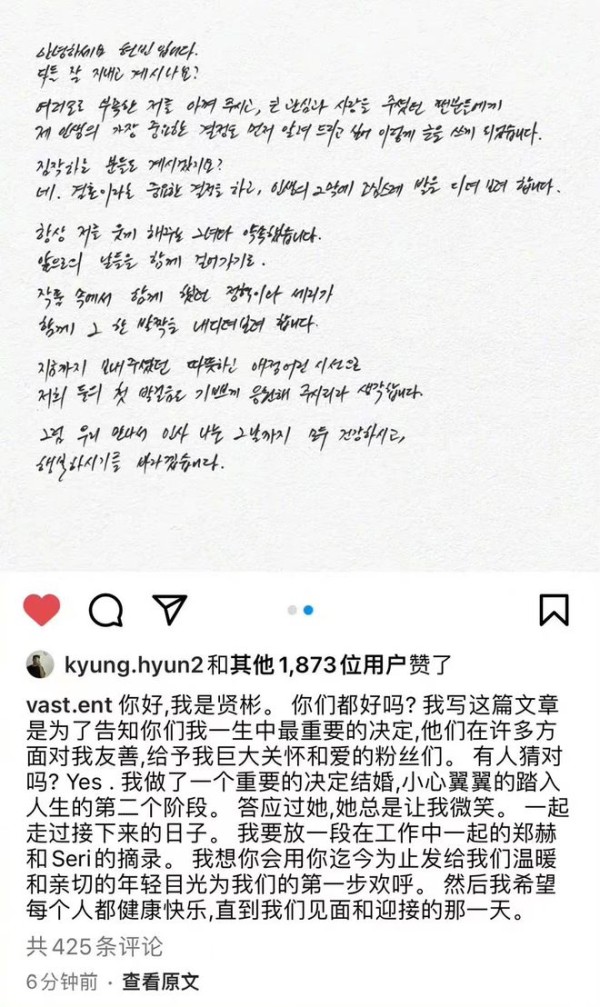 안녕하세요 현빈입니다.
다들 잘 지내고 계시나요?
여러모로 부족한 저를 아껴 주시고, 큰 관심과 사랑을 주셨던 팬분들에게
제 인생의 가장 중요한 결정을 먼저 알려 드리고 싶어 이렇게 글을 쓰게 되었습니다.
짐작하는 분들도 계시겠지요?
네. 결혼이라는 중요한 결정을 하고, 인생의 2막에 조심스레 발을 디뎌 보려 합니다.
항상 저를 웃게 해주는 그녀와 약속했습니다.
앞으로의 날들을 함께 걸어가기로.
작품 속에서 함께 했던 정혁이와 세리가
함께 그 한 발짝을 내디뎌보려 합니다.
지금까지 보내주셨던 따뜻하고 애정어린 시선으로
저희 둘의 첫 발걸음도 기쁘게 응원해 주시리라 생각합니다.
그럼 우리 만나서 인사 나눌 그날까지 모두 건강하시고,
행복하시기를 바라겠습니다.
kyung.hyun2和其他1,873位用户赞了
vast.ent 你好,我是贤彬。 你们都好吗? 我写这篇文章
是为了告知你们我一生中最重要的决定,他们在许多方
面对我友善,给予我巨大关怀和爱的粉丝们。 有人猜对
吗? Yes . 我做了一个重要的决定结婚,小心翼翼的踏入
人生的第二个阶段。 答应过她,她总是让我微笑。 一起
走过接下来的日子。 我要放一段在工作中一起的郑赫
和Seri的摘录。 我想你会用你迄今为止发给我们温暖
和亲切的年轻目光为我们的第一步欢呼。 然后我希望
每个人都健康快乐,直到我们见面和迎接的那一天。
共425条评论
6分钟前 · 查看原文